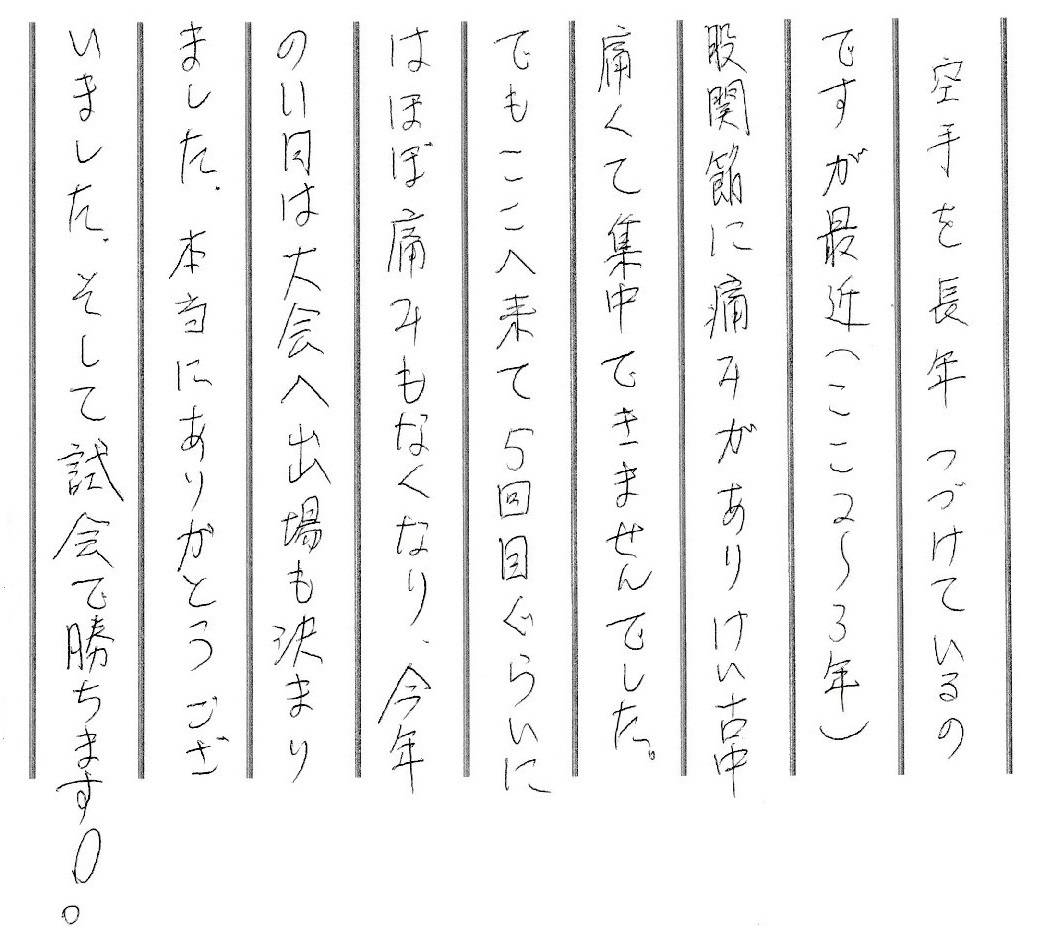 空手を長年つづけているの
ですが最近(ここ2〜3年)
股関節に痛みがありけい古中
痛くて集中できませんでした。
でもここへ来て5回目ぐらいに
はほぼ痛みもなくなり、今年
の11月は大会へ出場も決まり
ました。本当にありがとうござ
いました。そして試会で勝ちます!